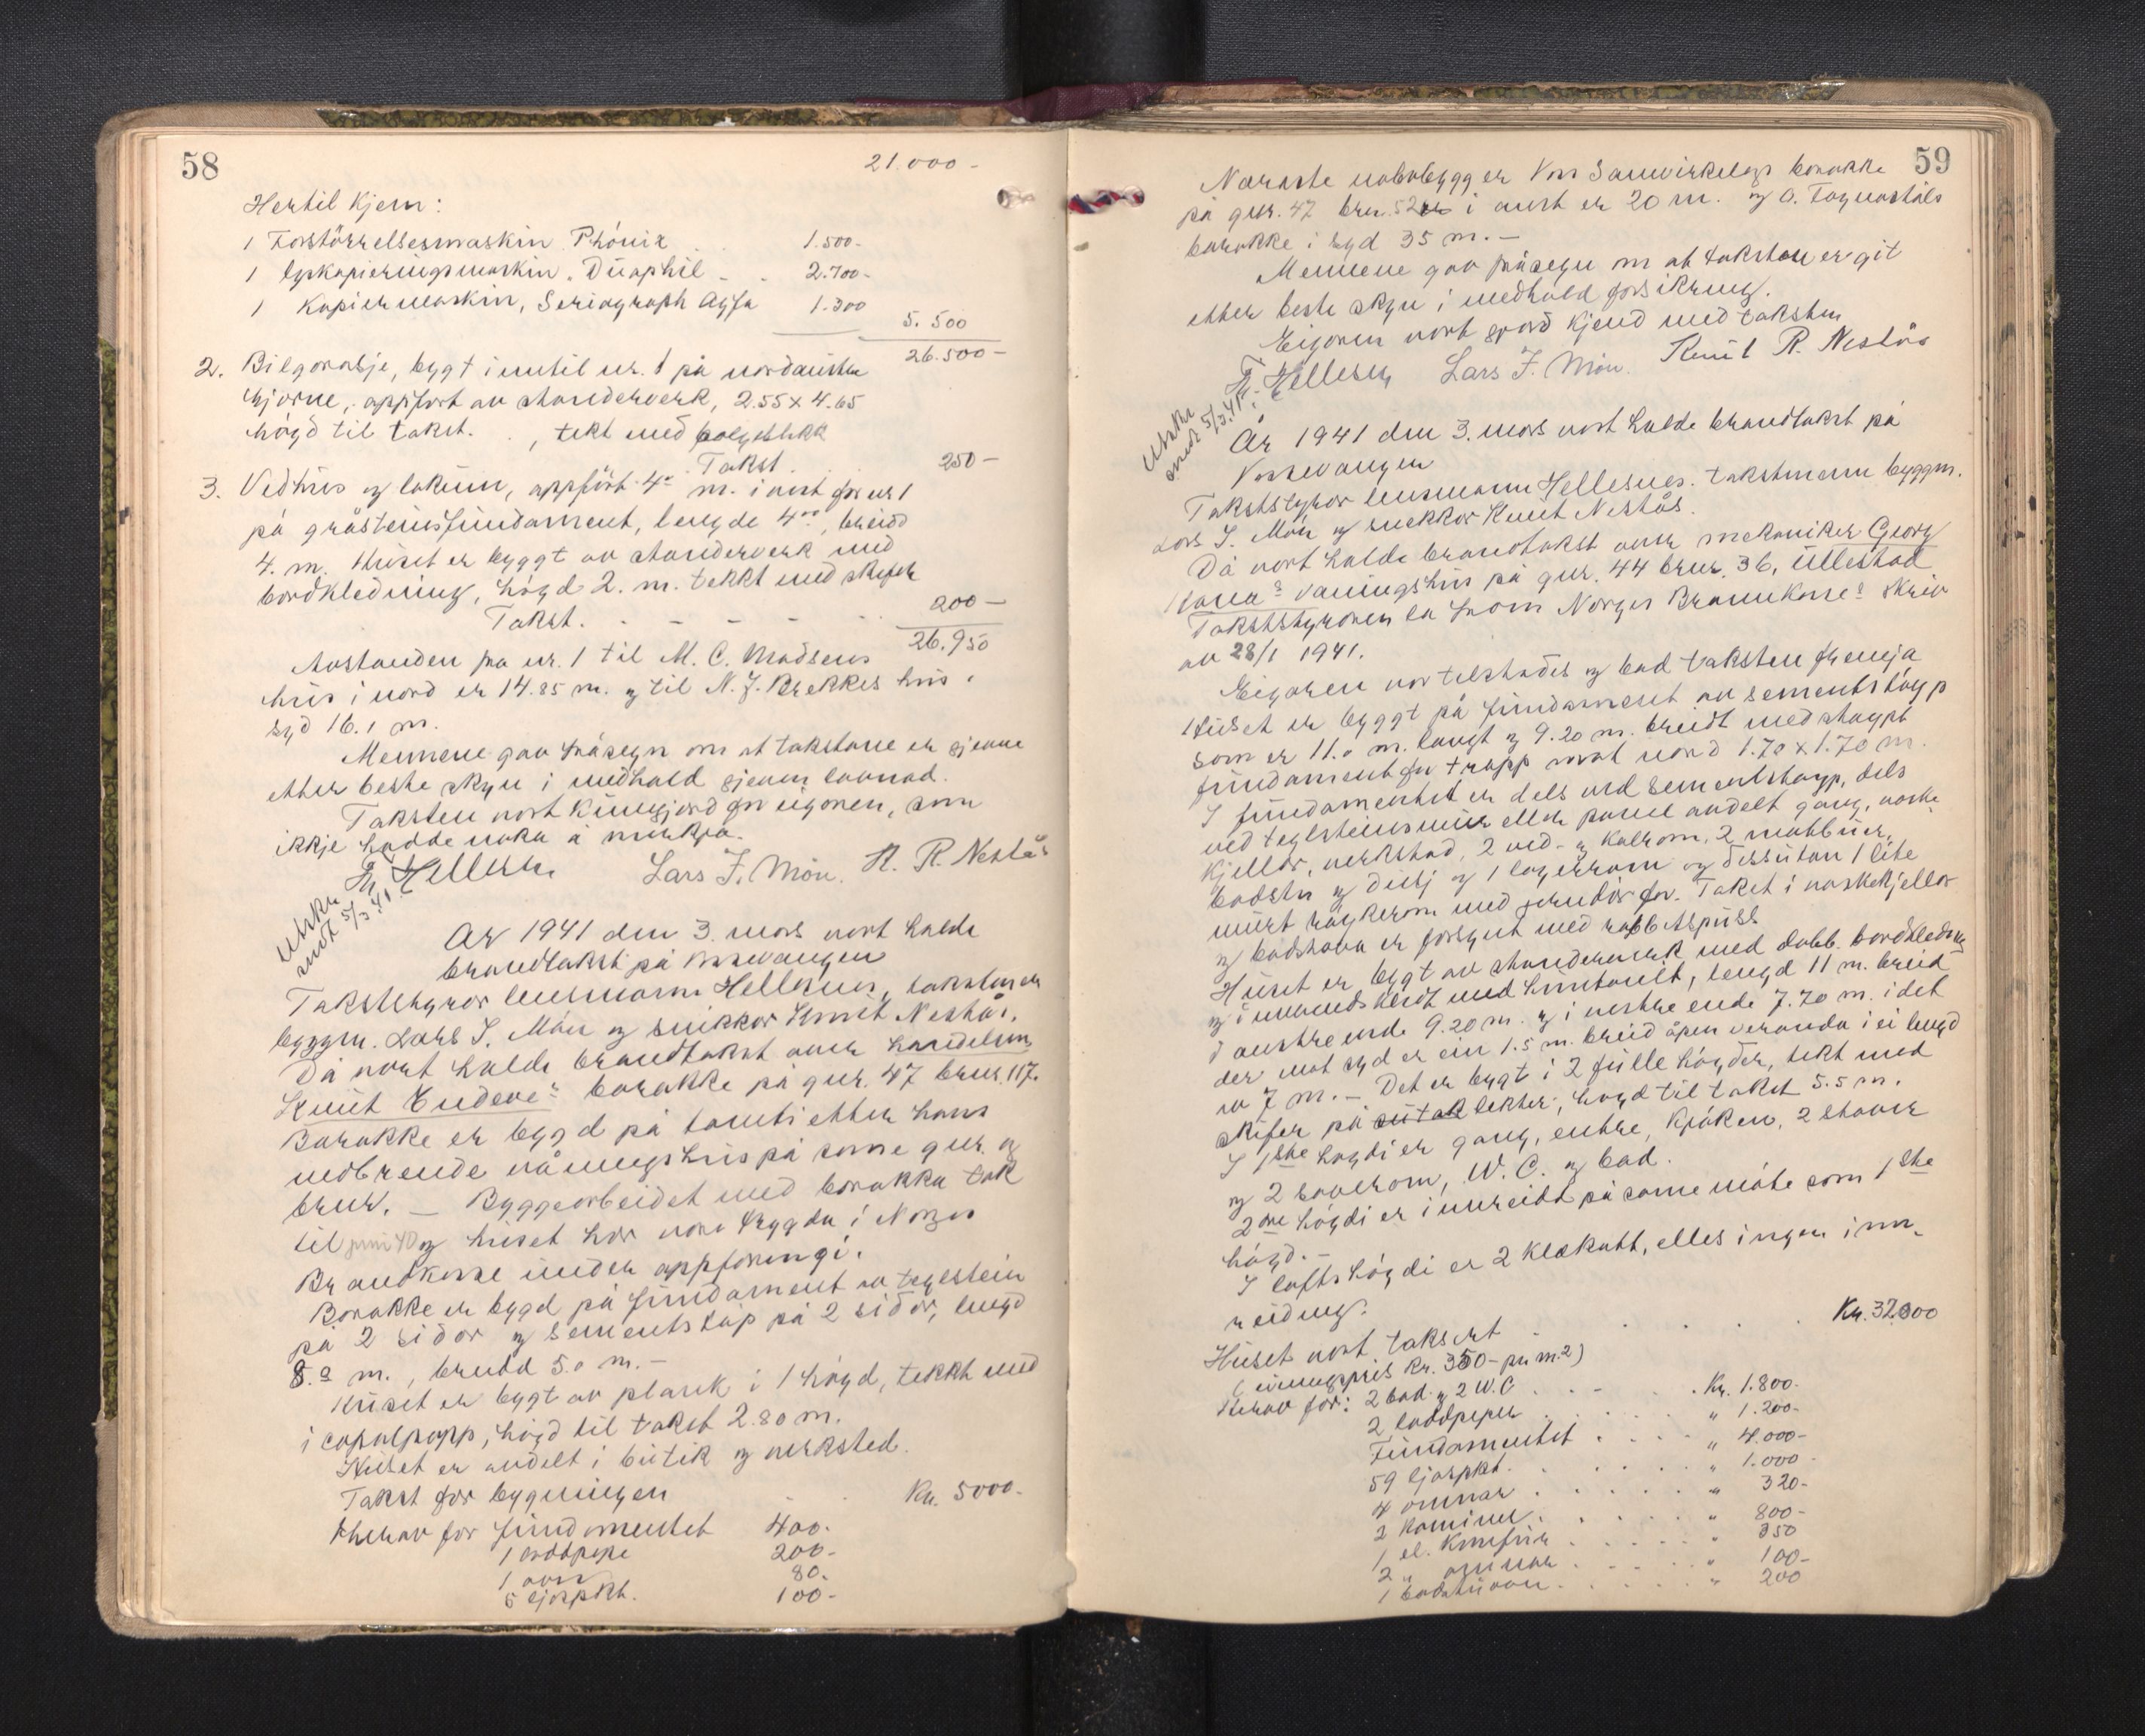 58
21.000 -
Hertil kjem:
1 Forstörrelsesmaskin Phönix . . 1.500.-
1 lyskopieringsmaskin, Düophil - . 2.700-
1 Kopiermaskin, Seriograph Agfa 1.300
5.500
26.500 -
2. Bilgorasje, bygt inntil nr. 1 på nordaustre
hjørne, oppfört av standerverk, 2.55 x 4.65
högd til takst. . , tekt med bølgeblikk
Takst. . 250 -
3. Vedhus og lokum, oppført 4.0 m. i aust for nr 1
på gråsteinsfundament, lengde 4.00, breidd
4. m. Huset er byggt av standerverk med
bordkledning, högd 2. m. tekkt med skifer
Takst. - - - - 200 -
26.950
Avstanden fra nr. 1 til M. C. Madsens
hus i nord er 14.85 m. og til N. J. Brekkes hus i
syd 16.1 m.
Mennene gav fråsegn om at takstane er gjevne
etter beste skyn i medhald gjeven lovnad.
Taksten vart kunngjord for eigaren, som
ikkje hadde noko å merkja.
Th. Hellesen Lars J. Møn. K. R. Nestås
Utskr.
sendt 5/3.41.
År 1941 den 3. mars vart halde
brandtakst på Vossevangen
Takststyrar lensmann Hellesnes, takstmenn
byggm. Lars J. Møn og snikkar Knut Nestås.
Då vart halde brandtakst over handelsm.
Knut Endeve's barakke på gnr. 47 brnr. 117.
Barakke er bygd på tomti etter hans
nedbrende våningshus på same gnr. og
brnr. - Byggearbeidet med barakka tok
til juni 40 og huset har vore trygda i Norges
Brandkasse under oppføringi.
Barakke er bygd på fundament av teglstein
på 2 sidor og sementstøp på 2 sidor, lengd
8.0 m., breidd 5.0 m. -
Huset er bygt av plank i 1 högd, tekkt med
i copalpapp, högd til takst 2.80 m.
Huset er avdelt i butik og verksted.
Takst for bygningen - . Kr. 5000.-
Herav for fundamentet 400.-
1 loddpipe 200.-
1 ovn 80.-
5 ljospkt. 100.-
59
Næraste nabobygg er Voss Samvirkelags barakke
på gnr. 47 brnr. 52 i aust er 20 m. og O. Fagnastøls
barakke i syd 35 m. -
Mennene gav fråsegn om at taksten er git
etter beste skyn i medhald forsikring.
Eigaren vart gjord kjend med taksten
Th. Hellesen Lars J. Møn. Knut R. Nestås
Utskr.
sendt 5/3.41.
År 1941 den 3. mars vart halde brandtakst på
Vossevangen
Takststyrar lensmann Hellesnes. takstmenn byggm.
Lars J. Møn og snekkar Knut Nestås.
Då vart halde brandtakst over mekaniker Georg
våningshus på gnr. 44 brnr. 36, Ullestad
Takststyraren la fram Norges Brannkasse's skriv
av 28/1 1941.
Eigaren var tilstades og bad taksten fremja
Huset er byggt på fundament av sementstøyp
som er 11.0 m. langt og 9.20 m. breidt med støypt
fundament for trapp mot nord 1.70 x 1.70 m.
I fundamentet er dels ved sementstøyp, dels
ved teglsteinsmur eller panel avdelt gang, vaske
kjellar, verkstad, 2 ved- og kolrom, 2 matbuer,
badstu og dusj og 1 lagerrom og dessutan 1 lite
murt røykerom med jerndør for. Taket i vaskekjellar
og badstova er forsynt med rabbitspuss.
Huset er bygt av standerverk med dobb. bordkledning
og innvendskledt med huntonit, lengd 11 m. breid
i austre ende 9.20 m. og i vestre ende 7.70 m. i det
der mot syd er ein 1.5 m. breid åpen veranda i ei lengd
av 7 m. - Det er bygt i 2 fulle høgder, tekt med
skifer på sutak lekter, høgd til takst 5.5 m.
I 1ste høgdi er gang, entre, kjøken, 2 stover
og 2 soverom, W. C. og bad.
2dre høgdi er innreidd på same måte som 1ste
høgd. -
I loftshøgdi er 2 klekott, elles ingen inn-
reiding.
Huset vart taksert - . . . . . Kr. 37.300
(einingspris kr. 350- pr. m.2)
Herav for: 2 bad og 2 W.C . . - . . Kr. 1.800.-
2 loddpiper . . . . . " 1.200-
Fundamentet . . . . " 4.000-
59 ljospkt. . . . . . " 1.000-
4 omnar . . . . . " 320-
2 kaminer . . . . . " 800-
1 el. komfyr . . . . . " 350
2 " omnar . . . . . " 100-
1 badstuovn . . . . . " 200